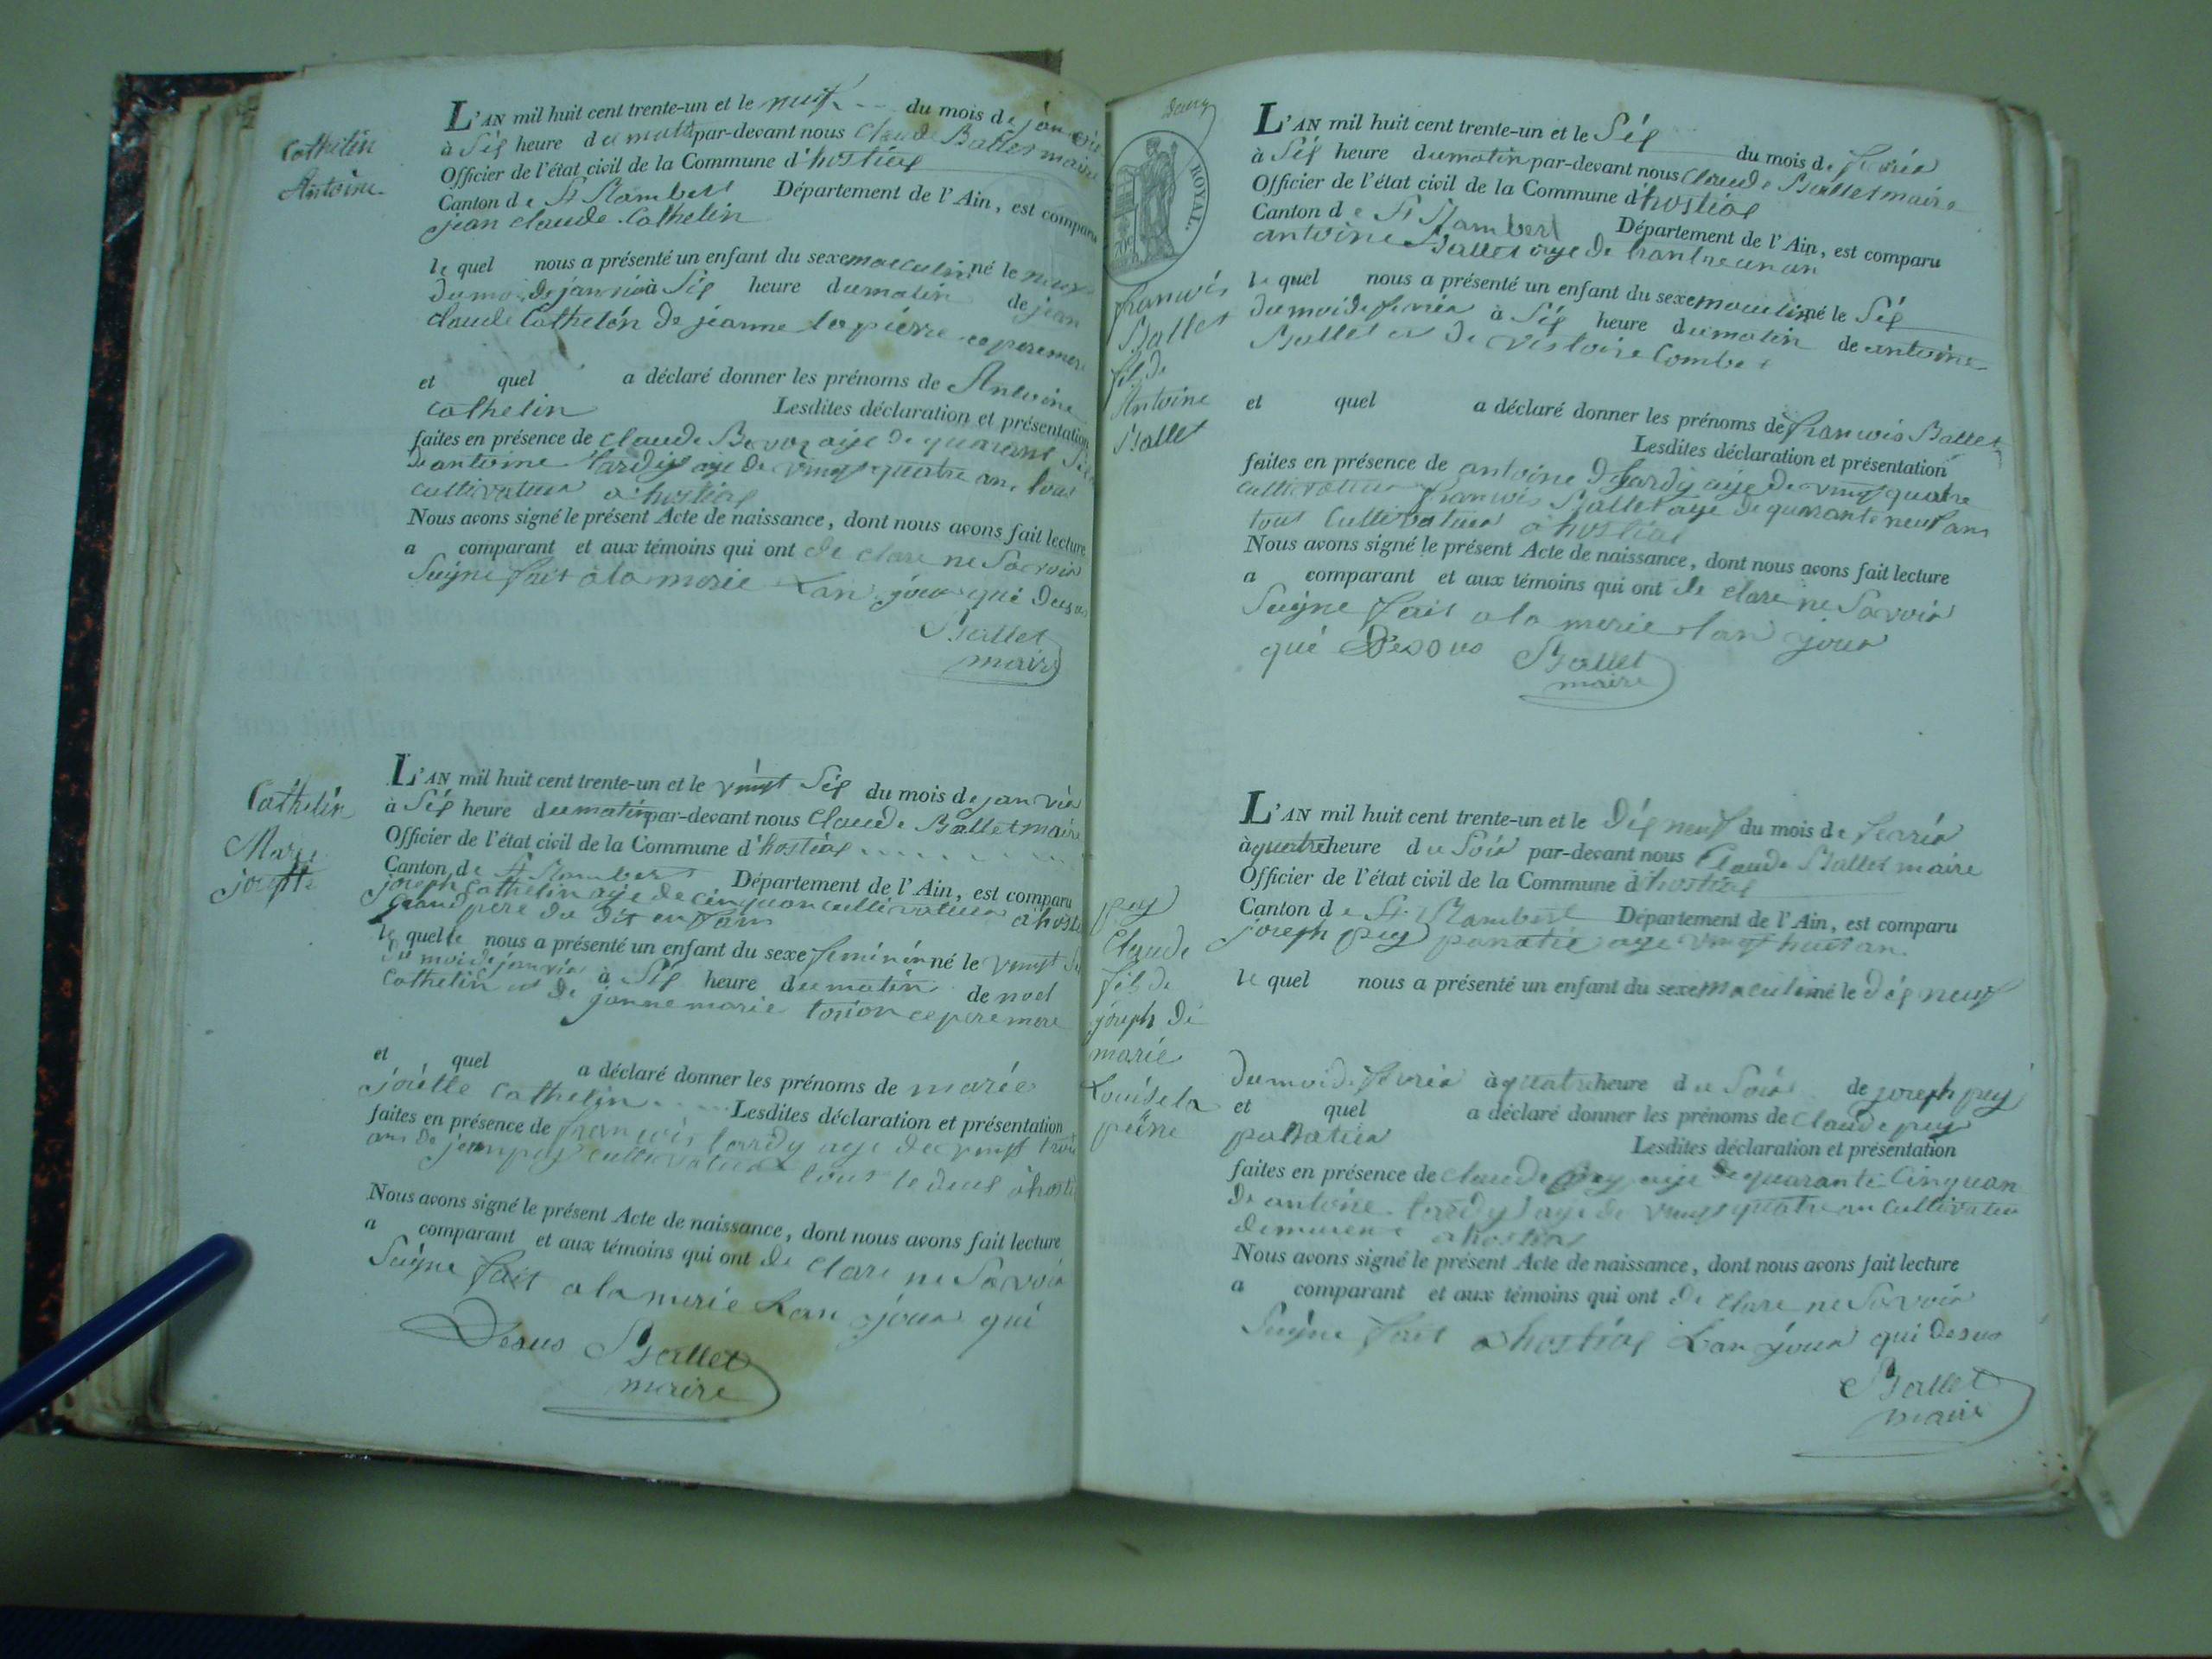 Cathelin
Antoine
L'AN mil huit cent trente-un et le neuf du mois de janvié
à Sis heure du matin par-devant nous Claude Ballet maire
Officier de l'état civil de la Commune d'hostias
Canton de St Rambert Département de l'Ain, est comparu
jean claude Cathelin
le quel nous a présenté un enfant du sexe masculin né le neuf
du moi de janvié à Sis heure du matin de jean
claude Cathelin de jeanne la pierre ce pere mere
et quel a déclaré donner les prénoms de Antoine
Cathelin Lesdites déclaration et présentation
faites en présence de claude aije de quarant
de antoine tardy aije de vingt quatre an tous
cultivateur a hostias
Nous avons signé le présent Acte de naissance, dont nous avons fait lecture
a comparant et aux témoins qui ont de clare ne Savoir
Suigne fait a la merie Lan jour qui desus
Ballet
maire
Cathelin
Marie
josephte
L'AN mil huit cent trente-un et le vingt Sis du mois de janvié
à Sis heure du matin par-devant nous Claude Ballet maire
Officier de l'état civil de la Commune d'hostias
Canton de St Rambert Département de l'Ain, est comparu
joseph Cathelin aije de cinquan cultivateur a hostias
grand pere du dit enfans
le quelle nous a présenté un enfant du sexe feminin né le vingt Sis
du moi de janvié à Sis heure du matin de noel
Cathelin et de janne marie ce pere mere
et quel a déclaré donner les prénoms de marie
Cathelin Lesdites déclaration et présentation
faites en présence de francois tardy aije de vingt trois
ans de jean puy cultivateur tous le deus a hostias
Nous avons signé le présent Acte de naissance, dont nous avons fait lecture
a comparant et aux témoins qui ont de clare ne Savoir
Suigne fait a la merie Lan jour qui
Desus Ballet
maire
ROYAL.
francois
Ballet
fils de
Antoine
Ballet
L'AN mil huit cent trente-un et le Sis du mois de fevrié
à Sis heure du matin par-devant nous Claude Ballet maire
Officier de l'état civil de la Commune d'hostias
Canton de St Rambert Département de l'Ain, est comparu
antoine Ballet aije de trantre un an
le quel nous a présenté un enfant du sexe masculin né le Sis
du moi de fevrié à Sis heure du matin de antoine
Ballet et de victoire Combet
et quel a déclaré donner les prénoms de francois Ballet
Lesdites déclaration et présentation
faites en présence de antoine tardy aije de vingt quatre
cultivateur francois Ballet aije de quarante neuf ans
tous Cultivateur a hostias
Nous avons signé le présent Acte de naissance, dont nous avons fait lecture
a comparant et aux témoins qui ont de clare ne Savoir
Suigne fait a la merie lan jour
qui Desous Ballet
maire
puy
Claude
fils de
joseph de
marie
Louise la
piérre
L'AN mil huit cent trente-un et le dis neuf du mois de fevrié
à quatre heure du Soir par-devant nous Claude Ballet maire
Officier de l'état civil de la Commune d'hostias
Canton de St. Rambert Département de l'Ain, est comparu
joseph puy aije vingt huit an
le quel nous a présenté un enfant du sexe masculin né le dis neuf
du moi de fevrié à quatre heure du Soir de joseph puy
et quel a déclaré donner les prénoms de Claude puy
Lesdites déclaration et présentation
faites en présence de Claude puy aije de quarante Cinq an
de antoine tardy aije de vingt quatre an cultivateur
demurent a hostias
Nous avons signé le présent Acte de naissance, dont nous avons fait lecture
a comparant et aux témoins qui ont de clare ne Savoir
Suigne fait a hostias Lan jour qui desus
Ballet
maire